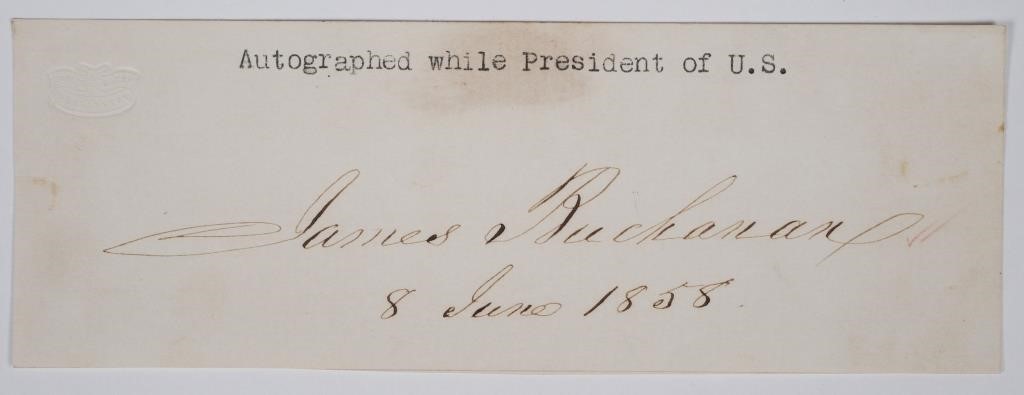 Autographed while President of U.S.
James Buchanan
8 June 1858.